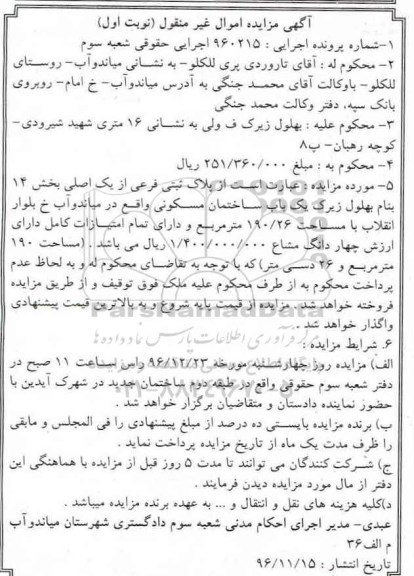 آگهی مزایده اموال غیر منقول (نوبت اول)
۱-شماره پرونده اجرایی : ۹۶۰۲۱۵ اجرایی حقوقی شعبه سوم
۲- محکوم له : آقای تاروردی پری للکلو- به نشانی میاندوآب- روستای
للکلو- باوکالت آقای محمد جنگی به آدرس میاندوآب- خ امام- روبروی
بانک سپه، دفتر وکالت محمد جنگی
۳- محکوم علیه : بهلول زیرک ف ولی به نشانی ۱۶ متری شهید شیرودی-
کوچه رهبان- پ۸
۴- محکوم به : مبلغ ۲۵۱/۳۶۰/۰۰۰ ریال
۵- مورده مزایده : عبارت است از پلاک ثبتی فرعی از یک اصلی بخش ۱۴
بنام بهلول زیرک یک باب ساختمان مسکونی واقع در میاندوآب خ بلوار
انقلاب با مساحت ۱۹۰/۲۶ مترمربع و دارای تمام امتیازات کامل دارای
ارزش چهار دانگ مشاع ۱/۴۰۰/۰۰۰/۰۰۰ ریال می باشد . (مساحت ۱۹۰
مترمربع و ۲۶ دسی متر) که با توجه به تقاضای محکوم له و به لحاظ عدم
پرداخت محکوم به از طرف محکوم علیه ملک فوق توقیف و از طریق مزایده
فروخته خواهد شد . مزایده از قیمت پایه شروع و به بالاترین قیمت پیشنهادی
واگذار خواهد شد .
۶. شرایط مزایده :
الف) مزایده روز چهارشنبه مورخه ۹۶/۱۲/۲۳ راس ساعت ۱۱ صبح در
دفتر شعبه سوم حقوقی واقع در طبقه دوم ساختمان جدید در شهرک آیدین با
حضور نماینده دادستان و متقاضیان برگزار خواهد شد .
ب) برنده مزایده بایستی ده درصد از مبلغ پیشنهادی را فی المجلس و مابقی
را ظرف مدت یک ماه از تاریخ مزایده پرداخت نماید .
ج) شرکت کنندگان می توانند تا مدت ۵ روز قبل از مزایده با هماهنگی این
دفتر از مال مورد مزایده دیدن فرمایند .
د)کلیه هزینه های نقل و انتقال و ... به عهده برنده مزایده میباشد .
عبدی- مدیر اجرای احکام مدنی شعبه سوم دادگستری شهرستان میاندوآب
م الف۳۶
تاریخ انتشار : ۹۶/۱۱/۱۵